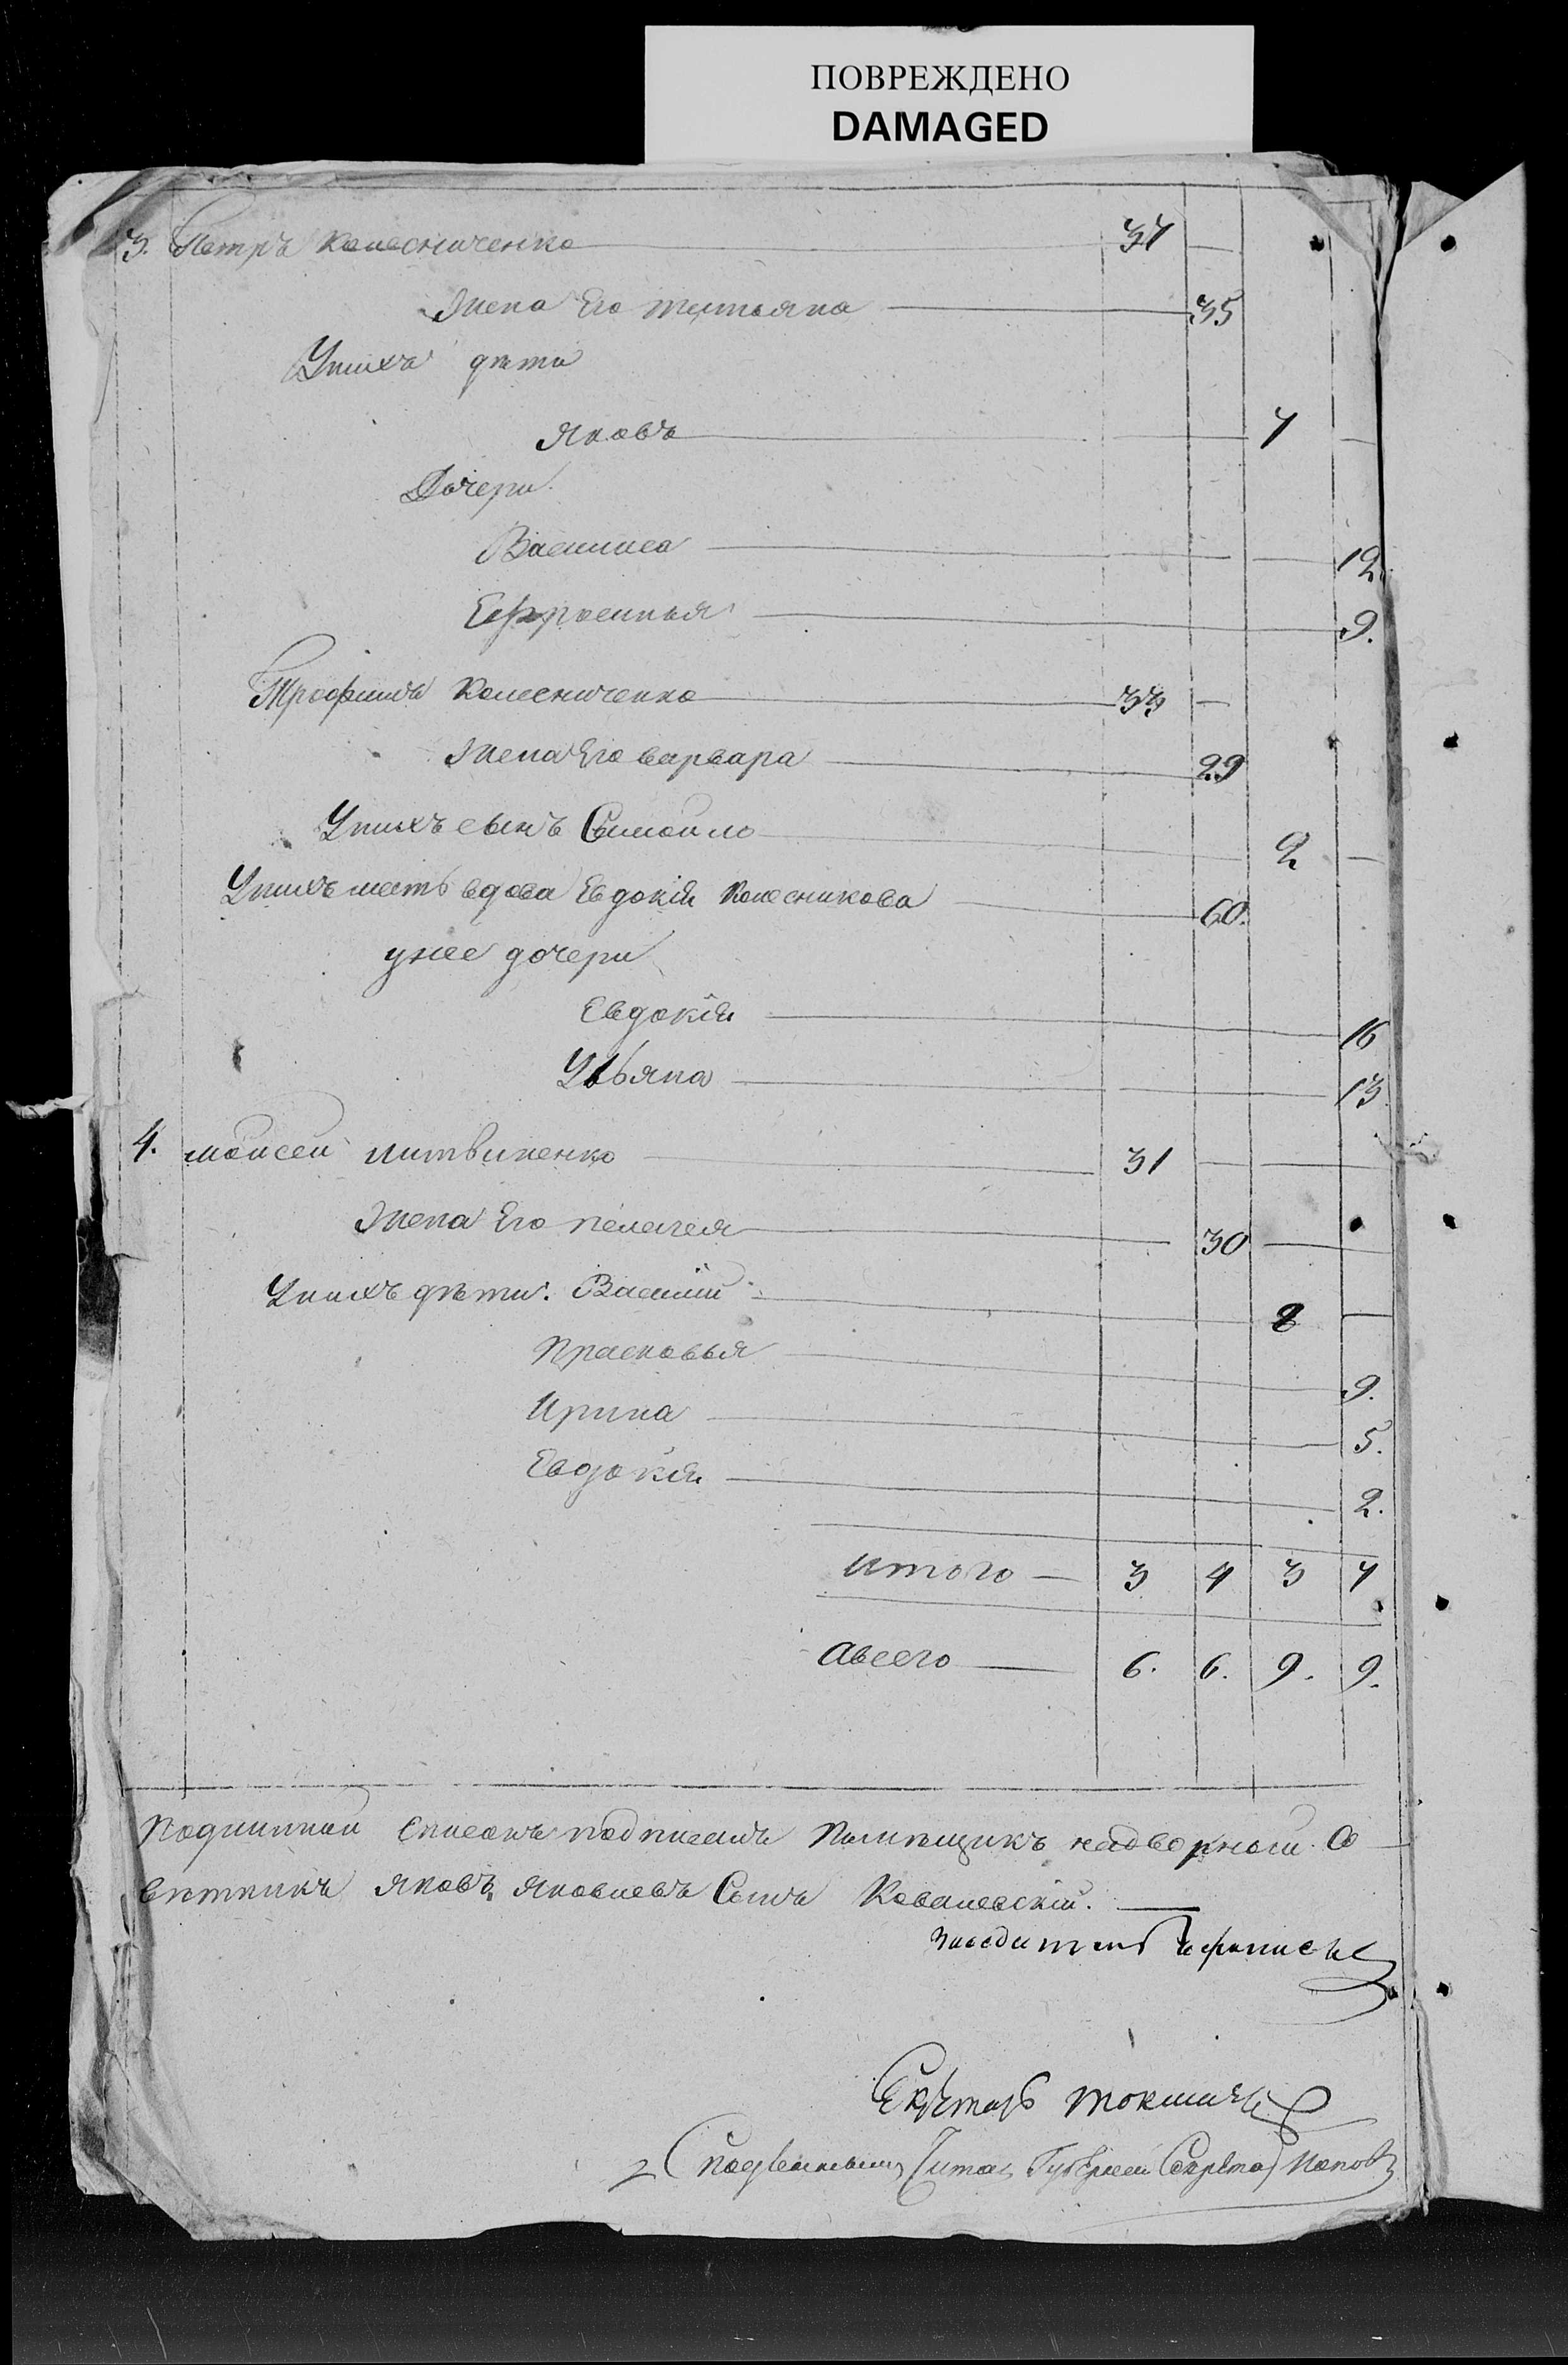 ПОВРЕЖДЕНО
DAMAGED
3. Петръ Колесниченко 37 —
Жена Его татьяна 35
Унихъ дѣти
Яковъ 7 —
Дочери.
Василиса 12.
Ефросинья 9.
Трофимъ Колесниченко 33 —
Жена Его варвара 29
Унихъ сынъ Самойло 2 —
Унихъ мать вдова Евдокія Колесникова 60.
унее дочери
Евдокія 16
Ульяна 13
4. моисей литвиненко 31 — —
Жена Его пелагея 30 —
Унихъ дѣти. Василій 8 —
Прасковья 9.
Ирина 5.
Евдокія 2.
итого — 3 4 3 7
Авсего — 6. 6. 9. 9.
Подлинной Списокъ подписалъ Помѣщикъ надворной Со
вѣтникъ Яковъ Яковлевъ Сынъ Ковалевскій. —
Секретарь
Съ подлиннымъ Читал Губернски Секретар Поповъ